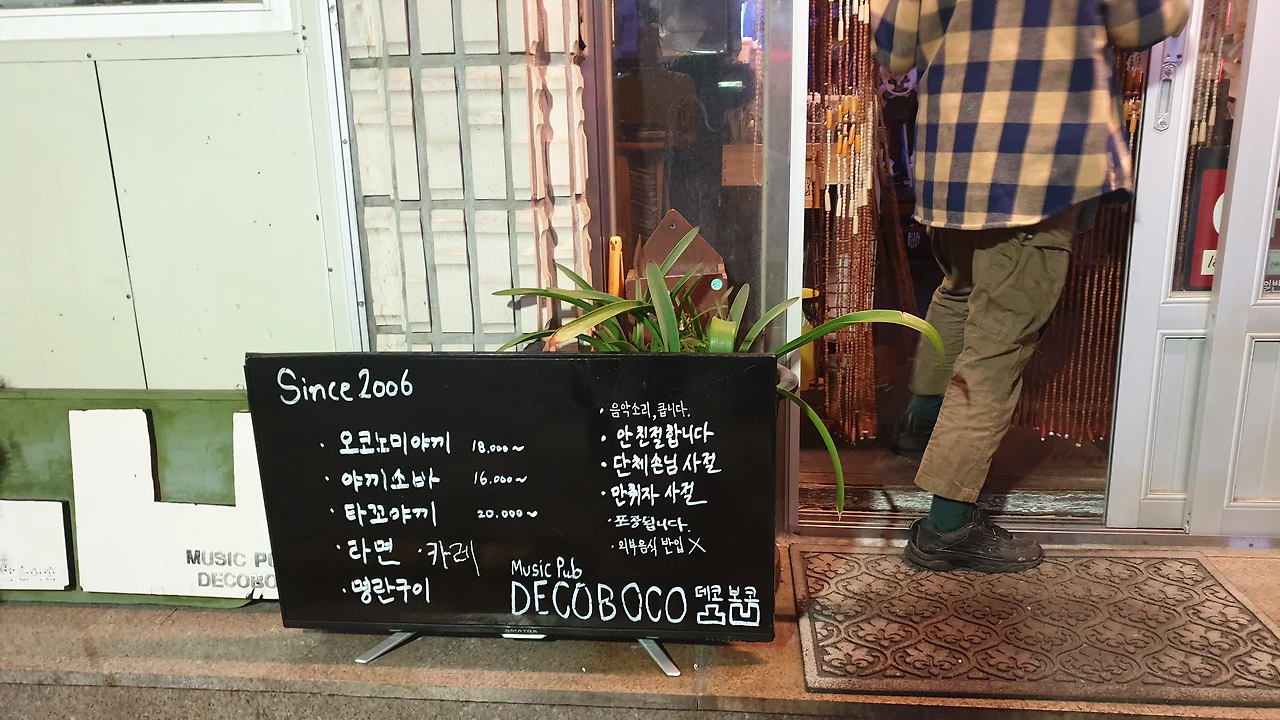 Since 2006
· 오코노미야끼 18.000~
· 야끼소바 16.000~
· 타꼬야끼 20.000~
· 라면 · 카레
· 명란구이
· 음악소리, 큽니다.
· 안친절합니다
· 단체손님 사절
· 만취자 사절
· 포장됩니다.
· 외부음식 반입 X
Music Pub
DECOBOCO 데코보코
凸凹
MUSIC PU
DECOBO